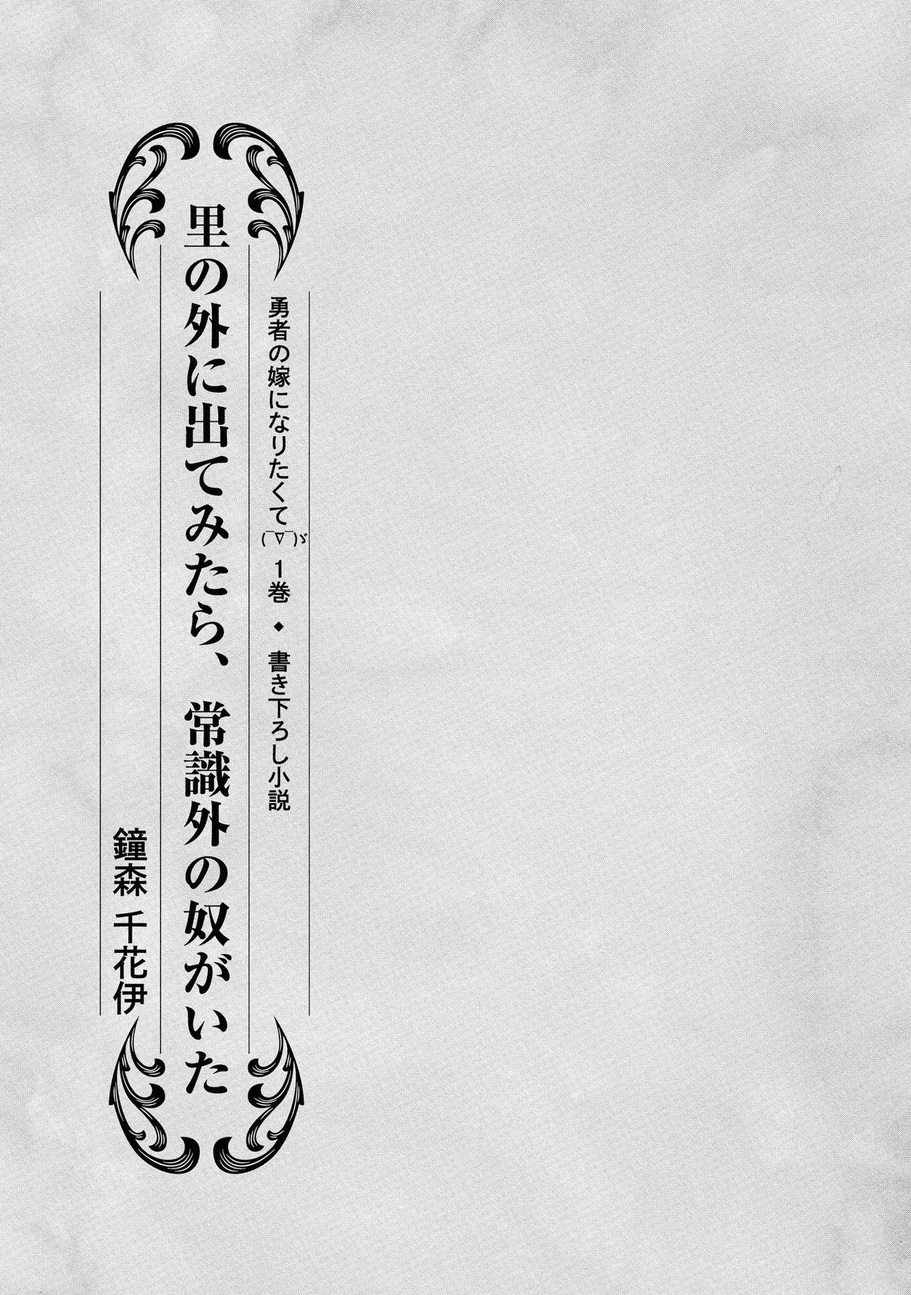 勇者の嫁になりたくて(￣∇￣)ゞ 1巻 ◆ 書き下ろし小説
里の外に出てみたら、常識外の奴がいた
鐘森 千花伊